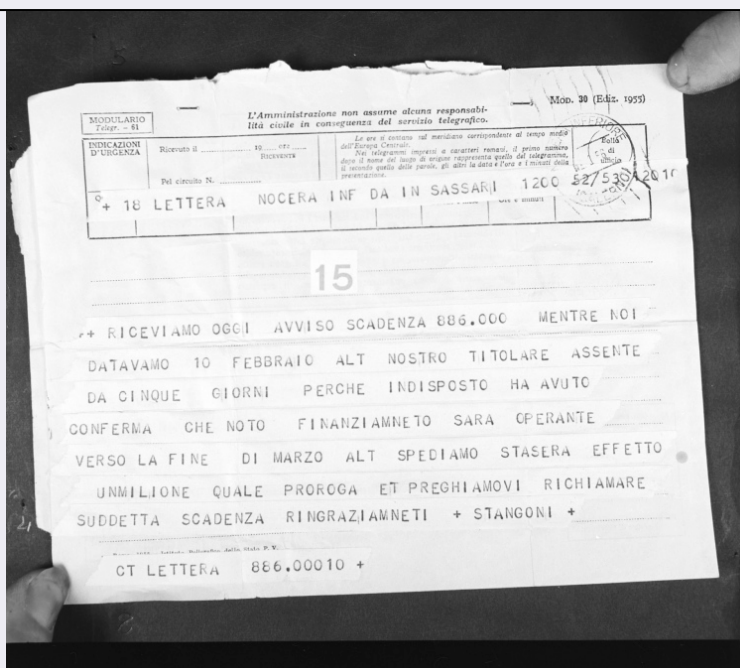 MODULARIO
Telegr. - 61
L'Amministrazione non assume alcuna responsabi-
lità civile in conseguenza del servizio telegrafico.
Mod. 30 (Ediz. 1955)
INDICAZIONI
D'URGENZA
Ricevuto il 19 ore
RICEVENTE
Pel circuito N.
Le ore si contano sul meridiano corrispondente al tempo medio
dell'Europa Centrale.
Nei telegrammi impressi a caratteri romani, il primo numero
dopo il nome del luogo di origine rappresenta quello del telegramma,
il secondo quello delle parole, gli altri la data e l'ora e i minuti della
presentazione.
Bollo
di
ufficio
+ 18 LETTERA NOCERA INF DA IN SASSARI 1200 52/53
15
+ RICEVIAMO OGGI AVVISO SCADENZA 886.000 MENTRE NOI
DATAVAMO 10 FEBBRAIO ALT NOSTRO TITOLARE ASSENTE
DA CINQUE GIORNI PERCHE INDISPOSTO HA AVUTO
CONFERMA CHE NOTO FINANZIAMNETO SARA OPERANTE
VERSO LA FINE DI MARZO ALT SPEDIAMO STASERA EFFETTO
UNMILIONE QUALE PROROGA ET PREGHIAMOVI RICHIAMARE
SUDDETTA SCADENZA RINGRAZIAMNETI + STANGONI +
CT LETTERA 886.00010 +